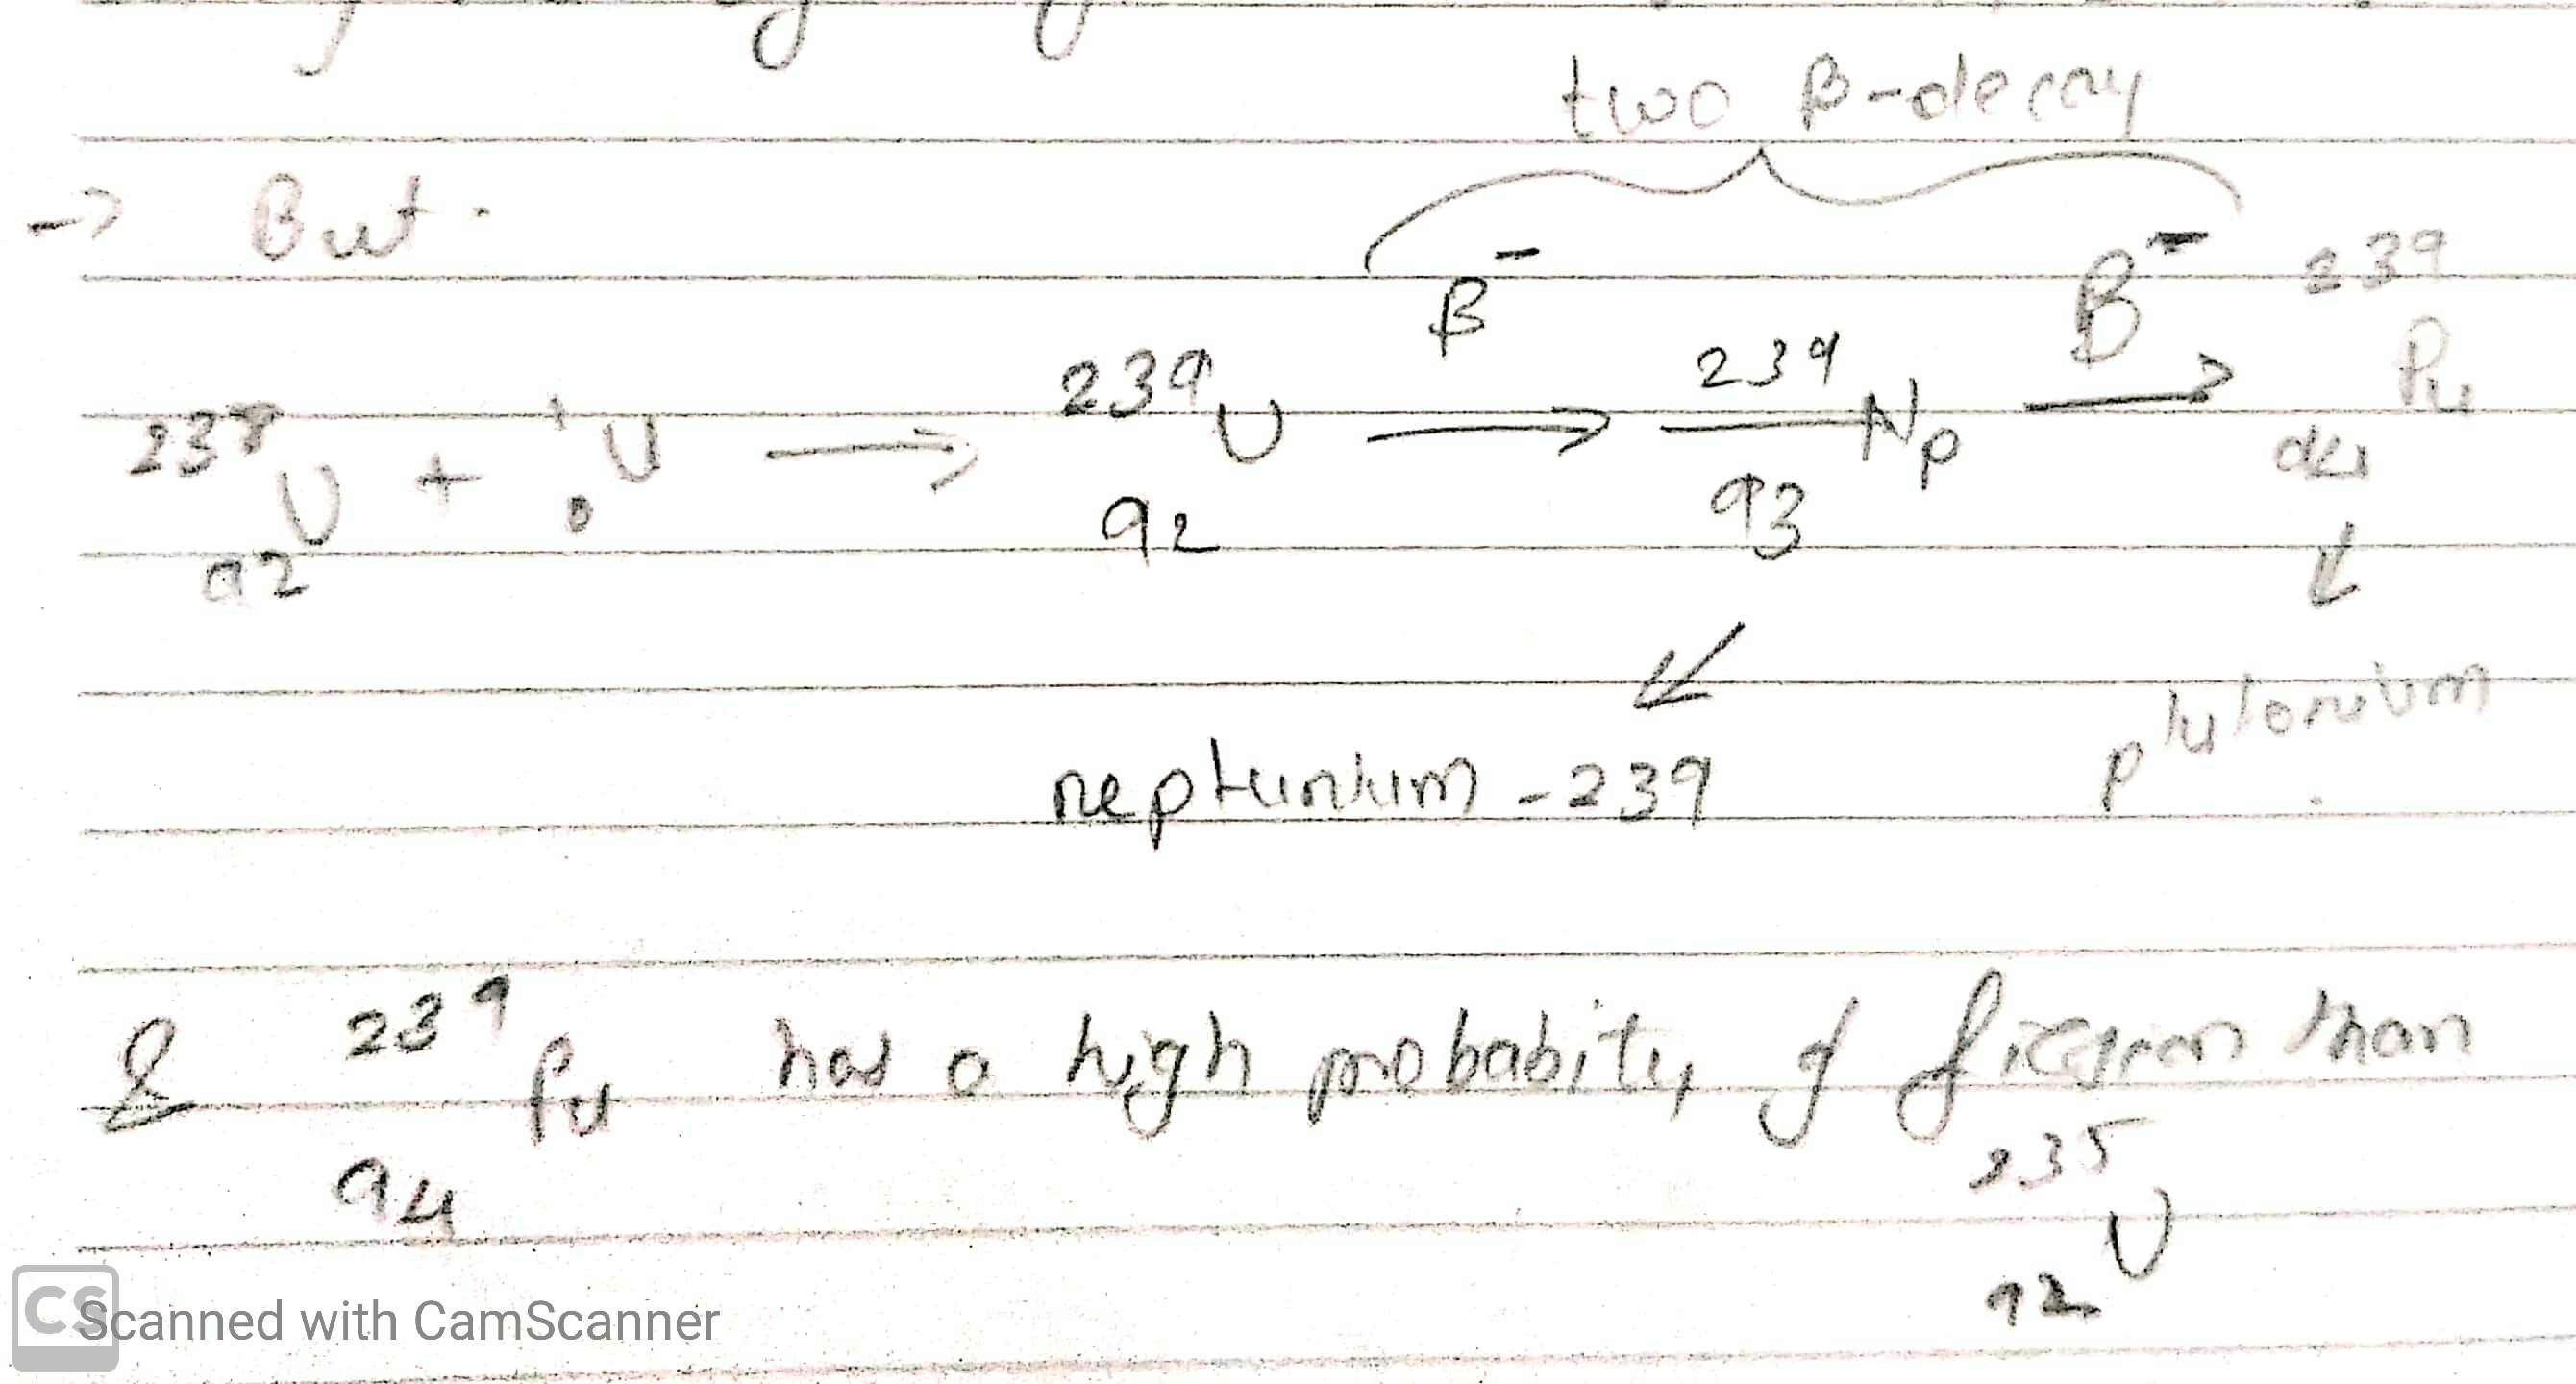 two β-decay
→ But.
²³⁸₉₂U + ¹₀U → ²³⁹₉₂U —β⁻→ ²³⁹₉₃Np —B⁻→ ²³⁹Pu
neptunium - 239 plutonium
& ²³⁹₉₄Pu has a high probabity of than
²³⁵₉₂U
CS Scanned with CamScanner